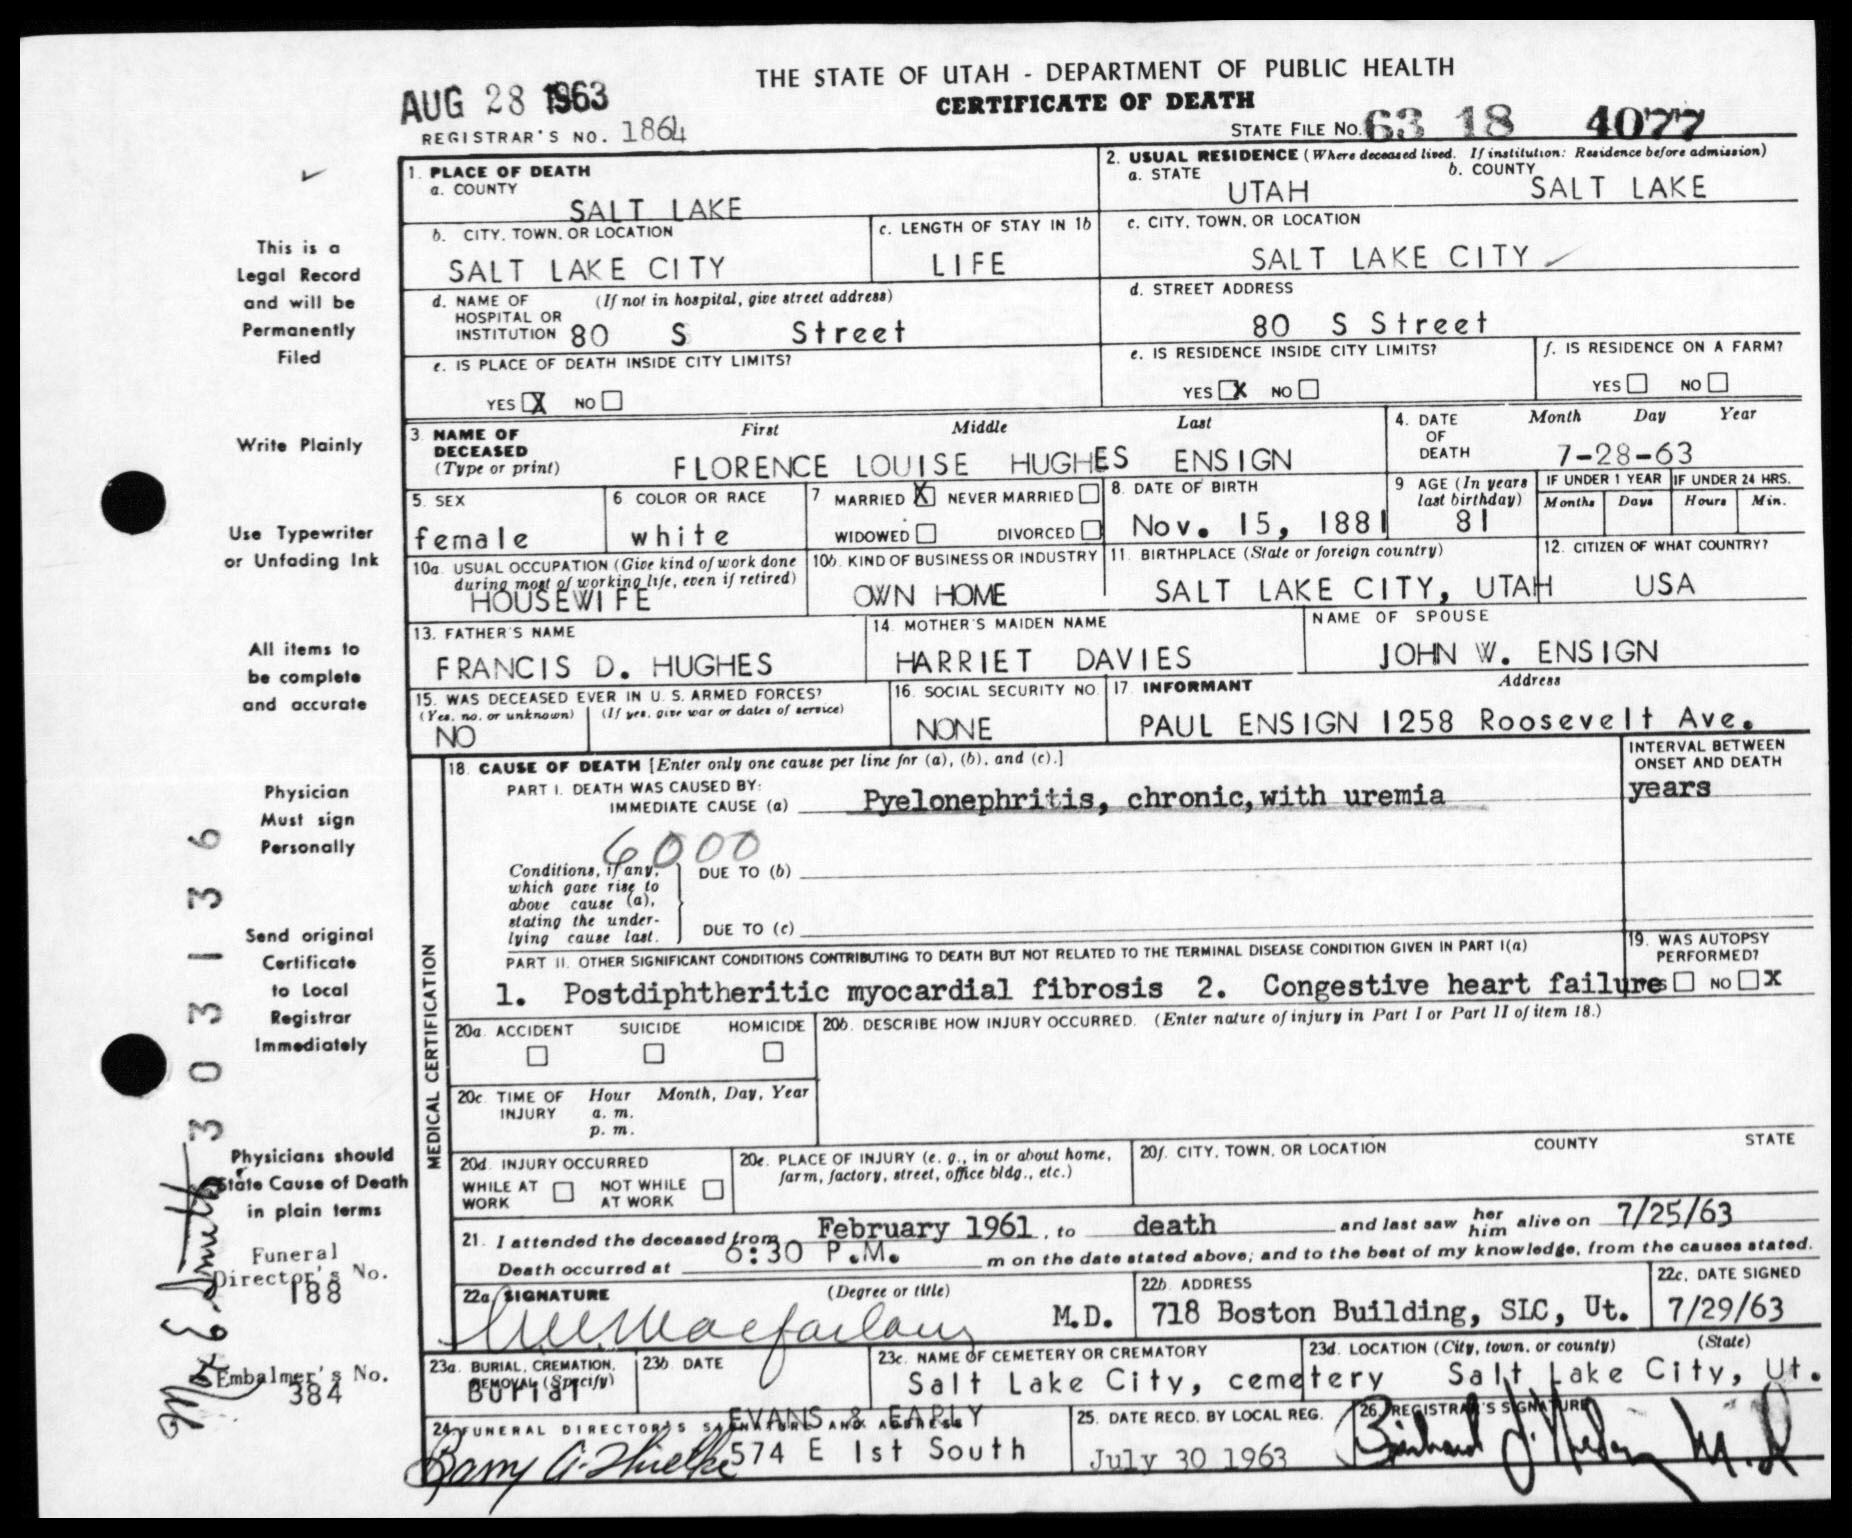 THE STATE OF UTAH - DEPARTMENT OF PUBLIC HEALTH
CERTIFICATE OF DEATH
AUG 28 1963
REGISTRAR'S NO. 1864
STATE FILE NO. 63 18 4077
This is a
Legal Record
and will be
Permanently
Filed
Write Plainly
Use Typewriter
or Unfading Ink
All items to
be complete
and accurate
Physician
Must sign
Personally
Send original
Certificate
to Local
Registrar
Immediately
Physicians should
State Cause of Death
in plain terms
Funeral
Director's No.
188
Embalmer's No.
384
3031336
1. PLACE OF DEATH
a. COUNTY
SALT LAKE
b. CITY, TOWN, OR LOCATION
SALT LAKE CITY
c. LENGTH OF STAY IN 1b
LIFE
d. NAME OF (If not in hospital, give street address)
HOSPITAL OR
INSTITUTION 80 S Street
e. IS PLACE OF DEATH INSIDE CITY LIMITS?
YES X NO
2. USUAL RESIDENCE (Where deceased lived. If institution: Residence before admission)
a. STATE
UTAH
b. COUNTY
SALT LAKE
c. CITY, TOWN, OR LOCATION
SALT LAKE CITY
d. STREET ADDRESS
80 S Street
e. IS RESIDENCE INSIDE CITY LIMITS?
YES X NO
f. IS RESIDENCE ON A FARM?
YES NO
3. NAME OF
DECEASED
(Type or print)
First Middle Last
FLORENCE LOUISE HUGHES ENSIGN
4. DATE
OF
DEATH
Month Day Year
7-28-63
5. SEX
female
6. COLOR OR RACE
white
7. MARRIED X NEVER MARRIED
WIDOWED DIVORCED
8. DATE OF BIRTH
Nov. 15, 1881
9. AGE (In years
last birthday)
81
IF UNDER 1 YEAR
Months Days
IF UNDER 24 HRS.
Hours Min.
10a. USUAL OCCUPATION (Give kind of work done
during most of working life, even if retired)
HOUSEWIFE
10b. KIND OF BUSINESS OR INDUSTRY
OWN HOME
11. BIRTHPLACE (State or foreign country)
SALT LAKE CITY, UTAH
12. CITIZEN OF WHAT COUNTRY?
USA
13. FATHER'S NAME
FRANCIS D. HUGHES
14. MOTHER'S MAIDEN NAME
HARRIET DAVIES
NAME OF SPOUSE
JOHN W. ENSIGN
15. WAS DECEASED EVER IN U. S. ARMED FORCES?
(Yes, no, or unknown) (If yes, give war or dates of service)
NO
16. SOCIAL SECURITY NO.
NONE
17. INFORMANT Address
PAUL ENSIGN 1258 Roosevelt Ave.
MEDICAL CERTIFICATION
18. CAUSE OF DEATH [Enter only one cause per line for (a), (b), and (c).]
PART I. DEATH WAS CAUSED BY:
IMMEDIATE CAUSE (a) Pyelonephritis, chronic, with uremia
INTERVAL BETWEEN
ONSET AND DEATH
years
6000
Conditions, if any,
which gave rise to
above cause (a),
stating the under-
lying cause last.
DUE TO (b)
DUE TO (c)
PART II. OTHER SIGNIFICANT CONDITIONS CONTRIBUTING TO DEATH BUT NOT RELATED TO THE TERMINAL DISEASE CONDITION GIVEN IN PART I(a)
1. Postdiphtheritic myocardial fibrosis 2. Congestive heart failure
19. WAS AUTOPSY
PERFORMED?
YES NO X
20a. ACCIDENT SUICIDE HOMICIDE
20b. DESCRIBE HOW INJURY OCCURRED. (Enter nature of injury in Part I or Part II of item 18.)
20c. TIME OF Hour Month, Day, Year
INJURY a. m.
p. m.
20d. INJURY OCCURRED
WHILE AT NOT WHILE
WORK AT WORK
20e. PLACE OF INJURY (e. g., in or about home,
farm, factory, street, office bldg., etc.)
20f. CITY, TOWN, OR LOCATION COUNTY STATE
21. I attended the deceased from February 1961, to death and last saw her him alive on 7/25/63
Death occurred at 6:30 P.M. m on the date stated above; and to the best of my knowledge, from the causes stated.
22a. SIGNATURE (Degree or title)
Macfarlane M.D.
22b. ADDRESS
718 Boston Building, SLC, Ut.
22c. DATE SIGNED
7/29/63
23a. BURIAL, CREMATION,
REMOVAL (Specify)
Burial
23b. DATE
23c. NAME OF CEMETERY OR CREMATORY
Salt Lake City, cemetery
23d. LOCATION (City, town, or county) (State)
Salt Lake City, Ut.
24. FUNERAL DIRECTOR'S SIGNATURE AND ADDRESS
EVANS & EARLY
574 E 1st South
25. DATE RECD. BY LOCAL REG.
July 30 1963
26. REGISTRAR'S SIGNATURE
M.D.